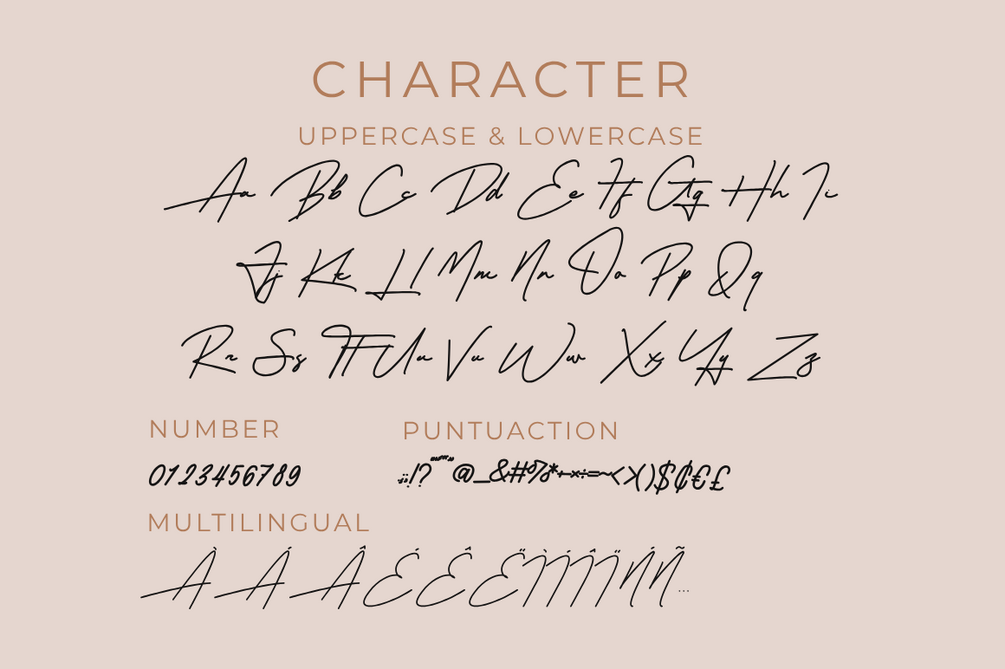 CHARACTER
UPPERCASE & LOWERCASE
Aa Bb Cc Dd Ee Ff Gg Hh Ii
Jj Kk Ll Mm Nn Oo Pp Qq
Rr Ss Tt Uu Vv Ww Xx Yy Zz
NUMBER
PUNTUACTION
0123456789
.,:;!?"@_&#%*+-×÷=~<>()$₵€£
MULTILINGUAL
À Á Â É Ê Ë Ì Í Î Ï Ń Ñ ...